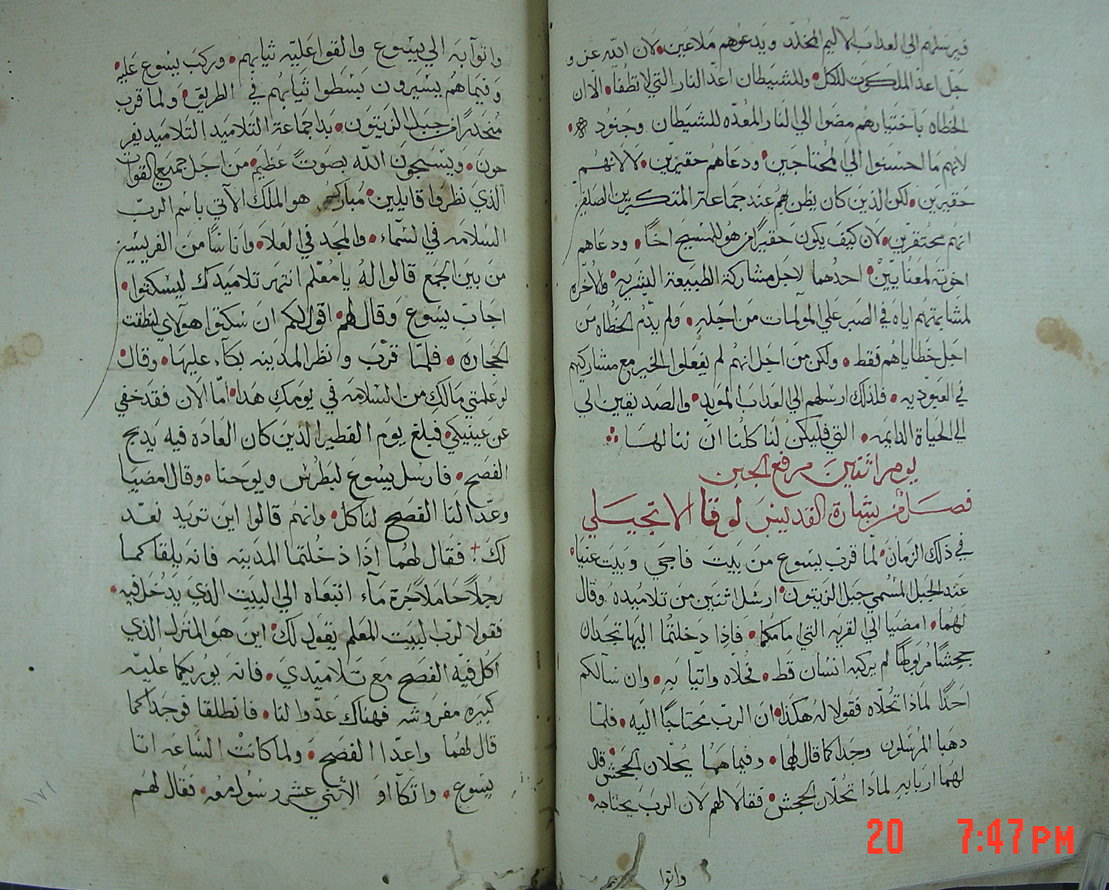 فيرسلهم الى العذاب الاليم المخلد ويدعوهم ملاعين لان الله عز و
جل اعد الملكوت للكل وللشيطان اعد النار التي لا تطفا الا ان
الخطاه باختيارهم مضوا الي النار المعده للشيطان وجنوده
لانهم ما احسنوا الي المحتاجين ودعاهم حقيرين لا لانهم
حقيرين لكن الذين كان يظن بهم عند جماعة المتكبرين الصلفين
انهم محتقرين لان كيف يكون حقيرا من هو للمسيح اخا ودعاهم
اخوته لمعنايين احدهما لاجل مشاركة الطبيعة البشريه والاخره
لمشابهتهم اياه في الصبر علي المولمات من اجله ولم يذم الخطاه من
اجل خطاياهم فقط ولكن من اجل انهم لم يفعلوا الخير مع مشاركيهم
في العبوديه فلذلك ارسلهم الي العذاب الموبد والصديقين الي
الي الحياة الدايمه التي فليكن لنا كلنا ان ننالها
يوم اثنين مرفع الجبن
فصل من بشارة القديس لوقا الانجيلي
في ذلك الزمان لما قرب يسوع من بيت فاجي وبيت عنيا
عند الجبل المسمي جبل الزيتون ارسل اثنين من تلاميذه وقال
لهما امضيا الي لقريه التي مامكما فاذا دخلتما اليها تجدان
جحشا مربوطا لم يركبه انسان قط فحلاه واتيا به وان سالكم
احدا لماذا تحلاه فقولا له هكذا ان الرب محتاجا اليه فلما
ذهبا المرسلون وجدا كما قال لهما وفيما هما يحلان الجحش قال
لهما اربابه لماذا تحلان الجحش فقالا لهم لان الرب يحتاجه
واتوا
واتوا به الي يسوع والقوا عليه ثيابهم وركب يسوع عليه
وفيما هم يسيرون بسطوا ثيابهم في الطريق ولما قرب
منحدرا من جبل الزيتون بدا جماعة التلاميد التلاميد يفر
حون ويسبحون الله بصوت عظيم من اجل جميع القوات
الذي نظروا قايلين مبارك هو الملك الاتي باسم الرب
السلامه في السماء والمجد في العلا واناسا من الفريسين
من بين الجمع قالوا له يا معلم انتهر تلاميدك ليسكتوا
اجاب يسوع وقال لهم اقول لكم ان سكتوا هولاي لنطقت
الحجاره فلما قرب ونظر المدينه بكا عليها وقال
لو علمتي مالك من السلامه في يومك هذا اما الان فقد خفي
عن عينيكي فبلغ يوم الفطير الذي كان العاده فيه يدبح
الفصح فارسل يسوع لبطرس ويوحنا وقال امضيا
وعدا لنا الفصح لناكل وانهم قالوا اين تريد نعد
لك فقال لهما اذا دخلتما المدينه فانه يلقاكما
رجلا حاملا جرة ماء اتبعاه الي البيت الذي يدخل فيه
فقولا لرب لبيت المعلم يقول لك اين هو المنزل الذي
اكل فيه الفصح مع تلاميدي فانه يوريكما عليه
كبيره مفروشه فهناك عدوا لنا فانطلقا فوجدا كما
قال لهما واعدا الفصح ولما كانت الساعه اتا
يسوع واتكا و الاثني عشر رسول معه فقال لهم
١٧١
20 7:47 PM